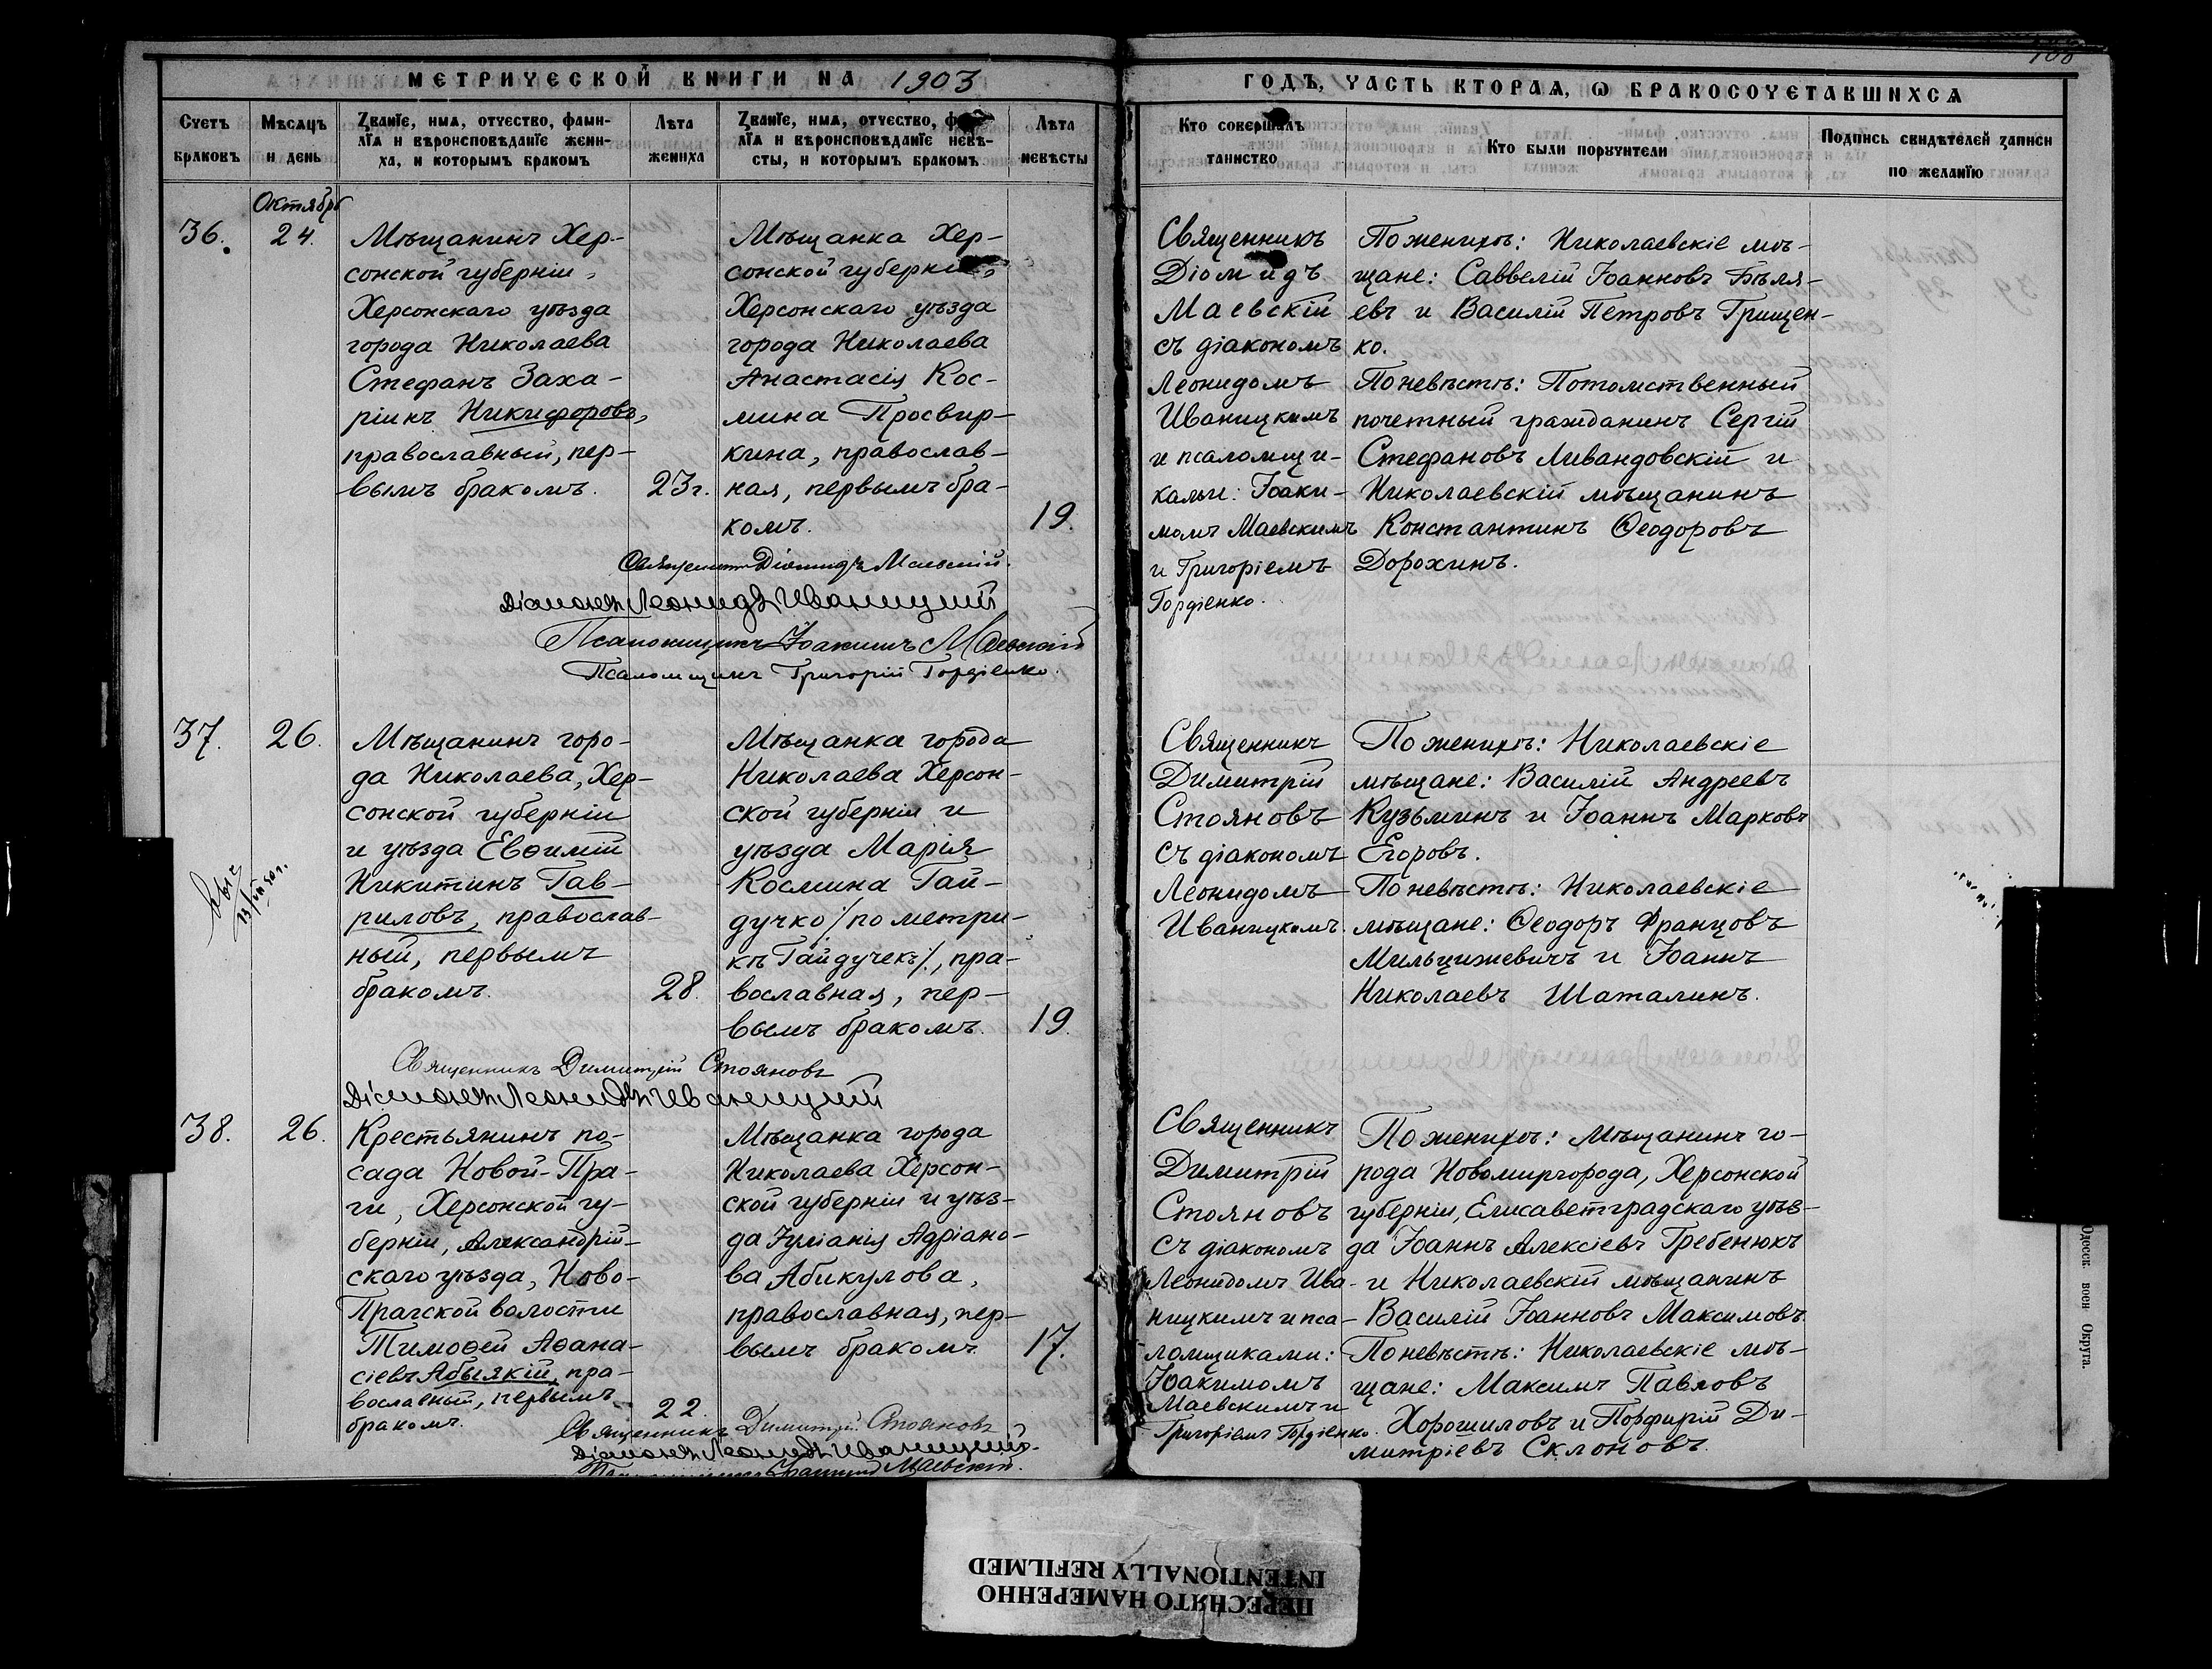 МЕТРИЧЕСКОЙ КНИГИ НА 1903
ГОДЪ, ЧАСТЬ ВТОРАЯ, Ѡ БРАКОСОЧЕТАВШИХСЯ
Счетъ
браковъ
Мѣсяцъ
и день
Званїе, имя, отчество, фами-
лїя и вѣроисповѣданїе жени-
ха, и которымъ бракомъ
Лѣта
жениха
Званїе, имя, отчество, фами-
лїя и вѣроисповѣданїе невѣ-
сты, и которымъ бракомъ
Лѣта
невѣсты
Кто совершалъ
таинство
Кто были поручители
Подпись свидѣтелей записи
по желанїю
Октябрь
36.
24.
Мѣщанинъ Хер-
сонской губерніи,
Херсонскаго уѣзда
города Николаева
Стефанъ Заха-
ріинъ Никифоровъ,
православный, пер-
вымъ бракомъ.
23 г.
Мѣщанка Хер-
сонской губерніи,
Херсонскаго уѣзда
города Николаева
Анастасія Кос-
мина Просвир-
кина, православ-
ная, первымъ бра-
комъ.
19.
Священникъ
Діомидъ
Маевскій
съ діакономъ
Леонидомъ
Иваницкимъ
и псаломщи-
ками: Іоаки-
момъ Маевскимъ
и Григоріемъ
Гордіенко.
По женихѣ: Николаевскіе мѣ-
щане: Саввелій Іоанновъ Бѣля-
евъ и Василій Петровъ Грищен-
ко.
По невѣстѣ: Потомственный
почетный гражданинъ Сергій
Стефановъ Ливандовскій и
Николаевскій мѣщанинъ
Константинъ Ѳеодоровъ
Дорохинъ.
Священникъ Діомидъ Маевскій.
Діаконъ Леонидъ Иваницкій
Псаломщикъ Іоакимъ Маевскій
Псаломщикъ Григорій Гордіенко.
37.
26.
Мѣщанинъ горо-
да Николаева, Хер-
сонской губерніи
и уѣзда Евѳимій
Никитинъ Гав-
риловъ, православ-
ный, первымъ
бракомъ.
28.
Мѣщанка города
Николаева Херсон-
ской губерніи и
уѣзда Марія
Космина Гай-
дучко /по метри-
кѣ Гайдучекъ/, пра-
вославная, пер-
вымъ бракомъ.
19.
Священникъ
Димитрій
Стояновъ
съ діакономъ
Леонидомъ
Иваницкимъ.
По женихѣ: Николаевскіе
мѣщане: Василій Андреевъ
Кузьминъ и Іоаннъ Марковъ
Егоровъ.
По невѣстѣ: Николаевскіе
мѣщане: Ѳеодоръ Францовъ
Мильцижевичъ и Іоаннъ
Николаевъ Шаталинъ.
Священникъ Димитрій Стояновъ
Діаконъ Леонидъ Иваницкій
38.
26.
Крестьянинъ по-
сада Новой-Пра-
ги, Херсонской гу-
берніи, Александрій-
скаго уѣзда, Ново-
Прагской волости
Тимоѳей Аѳана-
сіевъ Абыякій, пра-
вославный, первымъ
бракомъ.
22.
Мѣщанка города
Николаева Херсон-
ской губерніи и уѣз-
да Іуліанія Адріано-
ва Абикулова,
православная, пер-
вымъ бракомъ.
17.
Священникъ
Димитрій
Стояновъ
съ діакономъ
Леонидомъ Ива-
ницкимъ и пса-
ломщиками:
Іоакимомъ
Маевскимъ и
Григоріемъ Гордіенко.
По женихѣ: Мѣщанинъ го-
рода Новомиргорода, Херсонской
губерніи, Елисаветградскаго уѣз-
да Іоаннъ Алексіевъ Гребенюкъ
и Николаевскій мѣщанинъ
Василій Іоанновъ Максимовъ.
По невѣстѣ: Николаевскіе мѣ-
щане: Максимъ Павловъ
Хорошиловъ и Порфирій Ди-
митріевъ Склоновъ.
Священникъ Димитрій Стояновъ
Діаконъ Леонидъ Иваницкій.
Псаломщикъ Іоакимъ Маевскій.
Одесск. воен. Округа.
ПЕРЕСНЯТО НАМЕРЕННО
INTENTIONALLY REFILMED